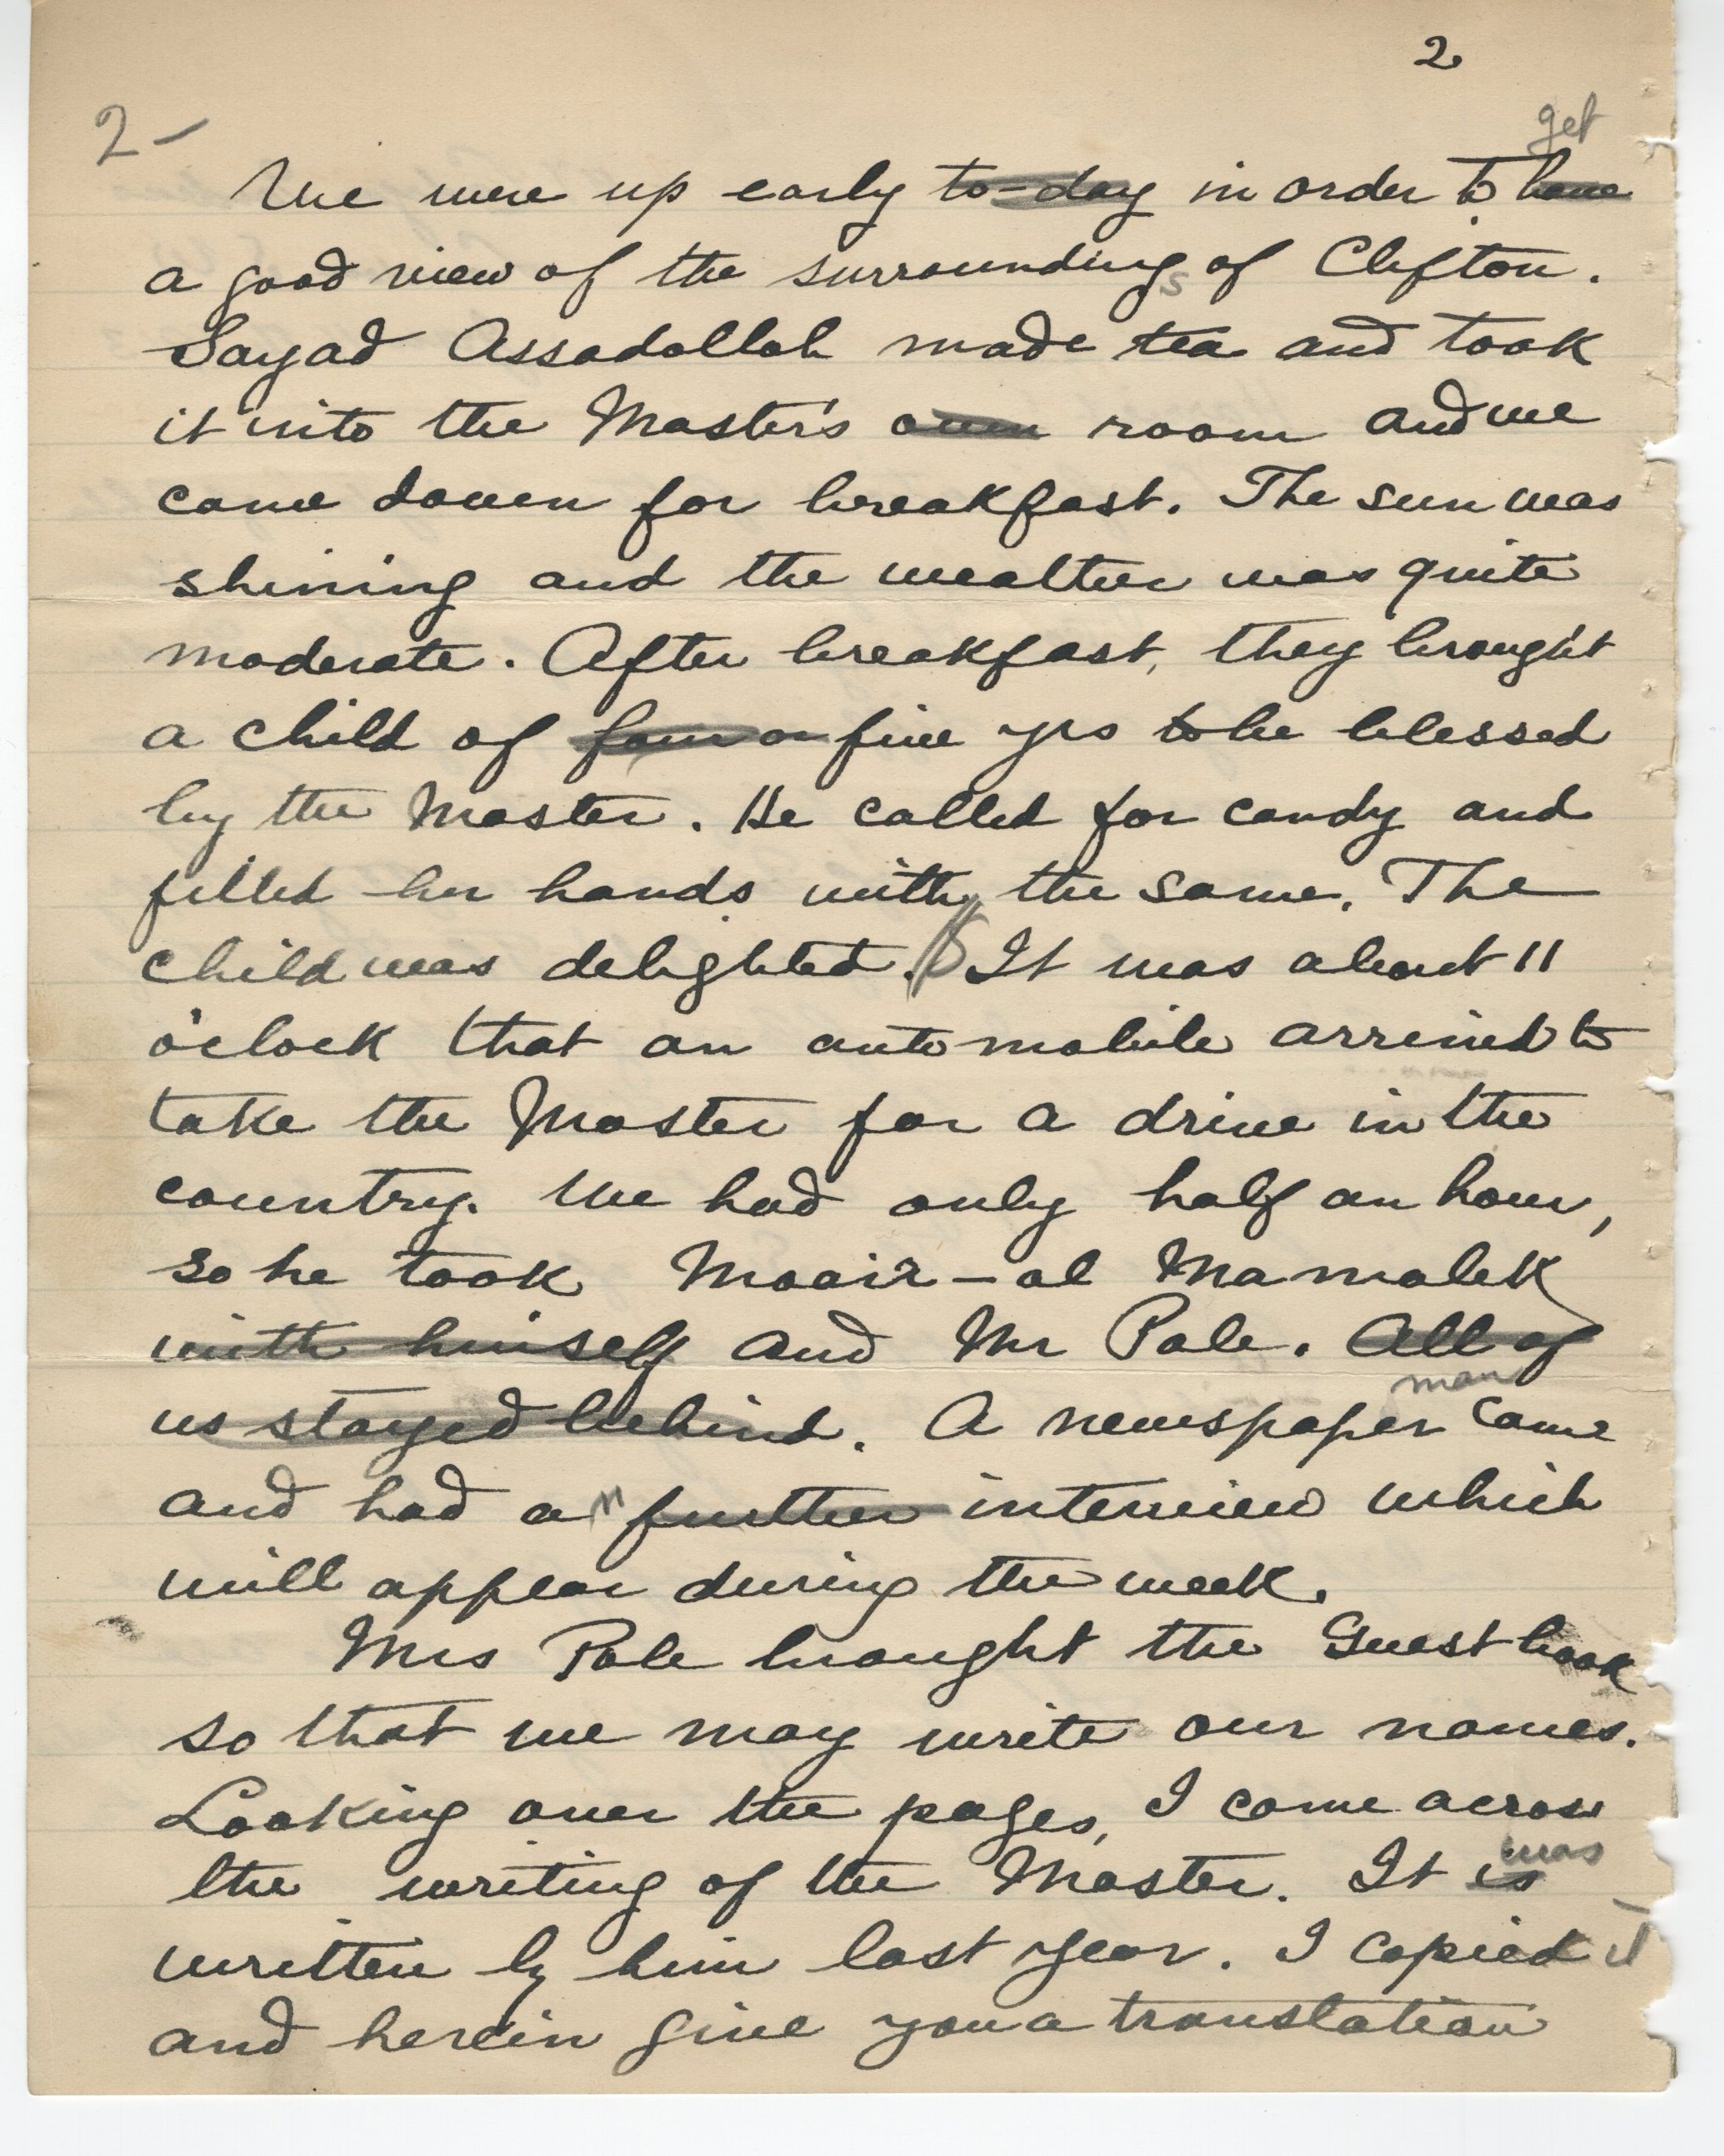 2
2-
get
We were up early to-day in order to have
a good view of the surroundings of Clifton.
Sayad Assadollah made tea and took
it into the Master's own room and we
came down for breakfast. The sun was
shining and the weather was quite
moderate. After breakfast, they brought
a child of four or five yrs to be blessed
by the Master. He called for candy and
filled her hands with the same. The
child was delighted. It was about 11
o'clock that an automobile arrived to
take the Master for a drive in the
country. We had only half an hour,
so he took Moair-al Mamalek
with himself and Mr Pole. All of
man
us stayed behind. A newspaper came
and had an further interview which
will appear during the week.
Mrs Pole brought the Guest book
so that we may write our names.
Looking over the pages, I come across
was
the writing of the Master. It is
written by him last year. I copied it
and herein give you a translation